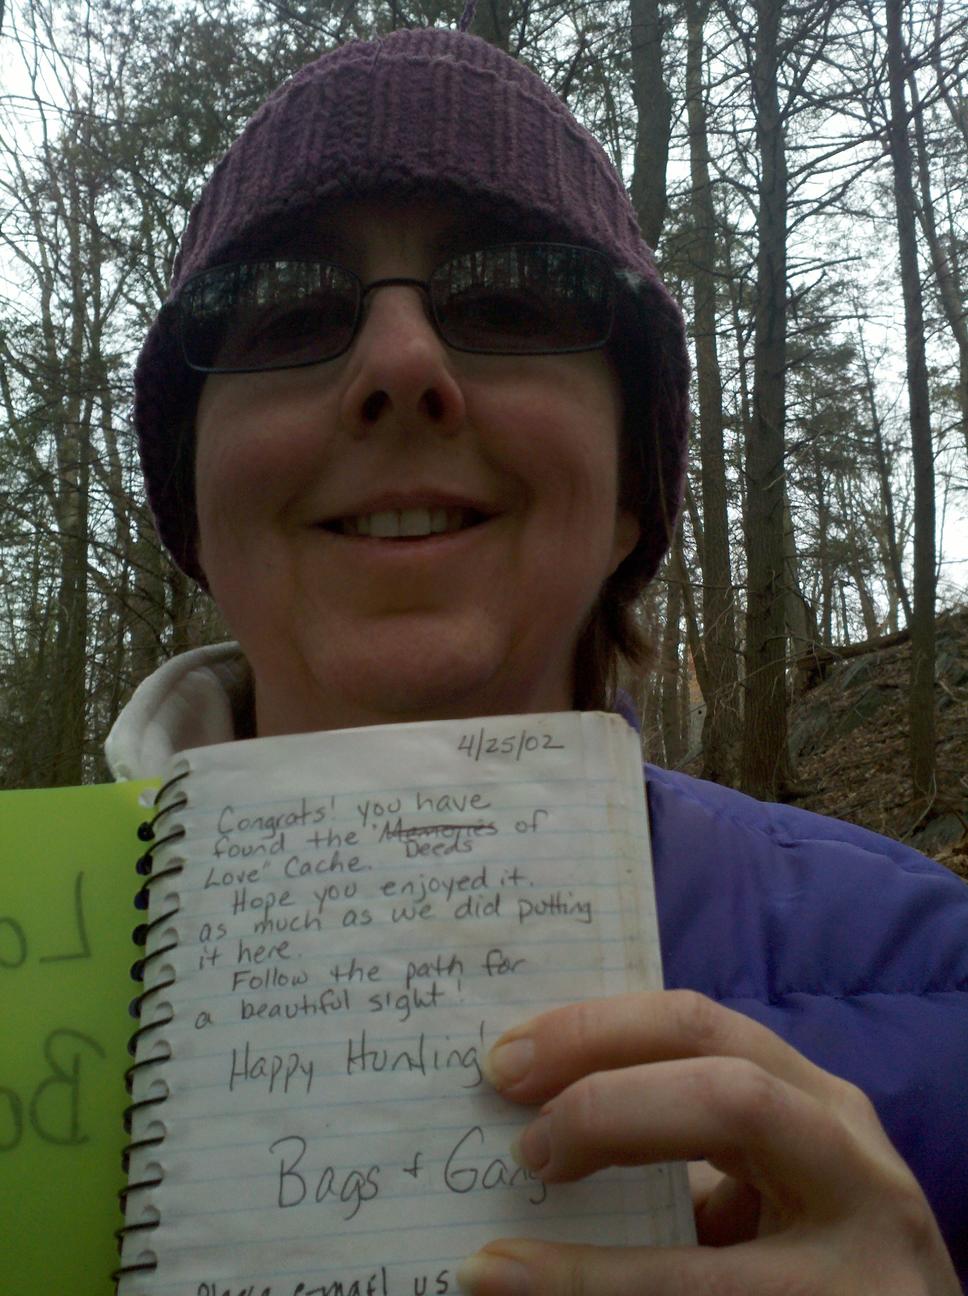 4/25/02
Congrats! you have
found the "Memories of
Deeds
Love" Cache.
Hope you enjoyed it.
as much as we did putting
it here.
Follow the path for
a beautiful sight!
Happy Hunting!
Bags + Gang
Please e-mail us
Lo
Bo